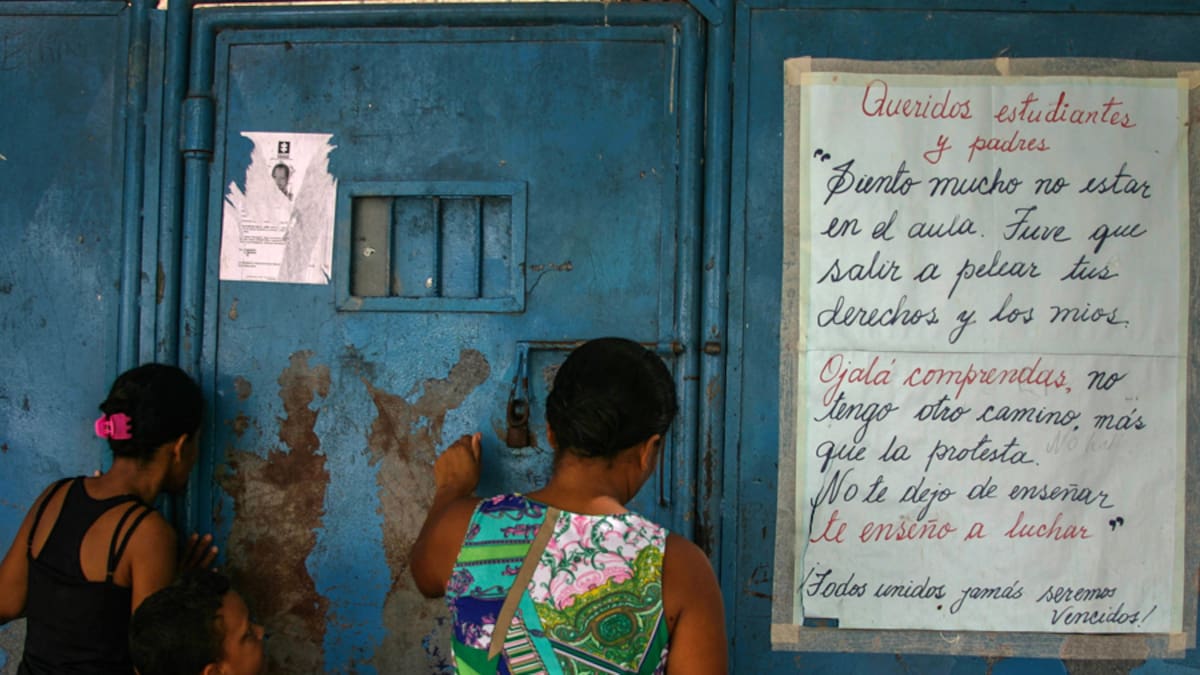 Queridos estudiantes
y padres
"Siento mucho no estar
en el aula. Tuve que
salir a pelear tus
derechos y los mios.
Ojalá comprendas, no
tengo otro camino, más
que la protesta.
No te dejo de enseñar
te enseño a luchar"
¡Todos unidos jamás seremos
Vencidos!